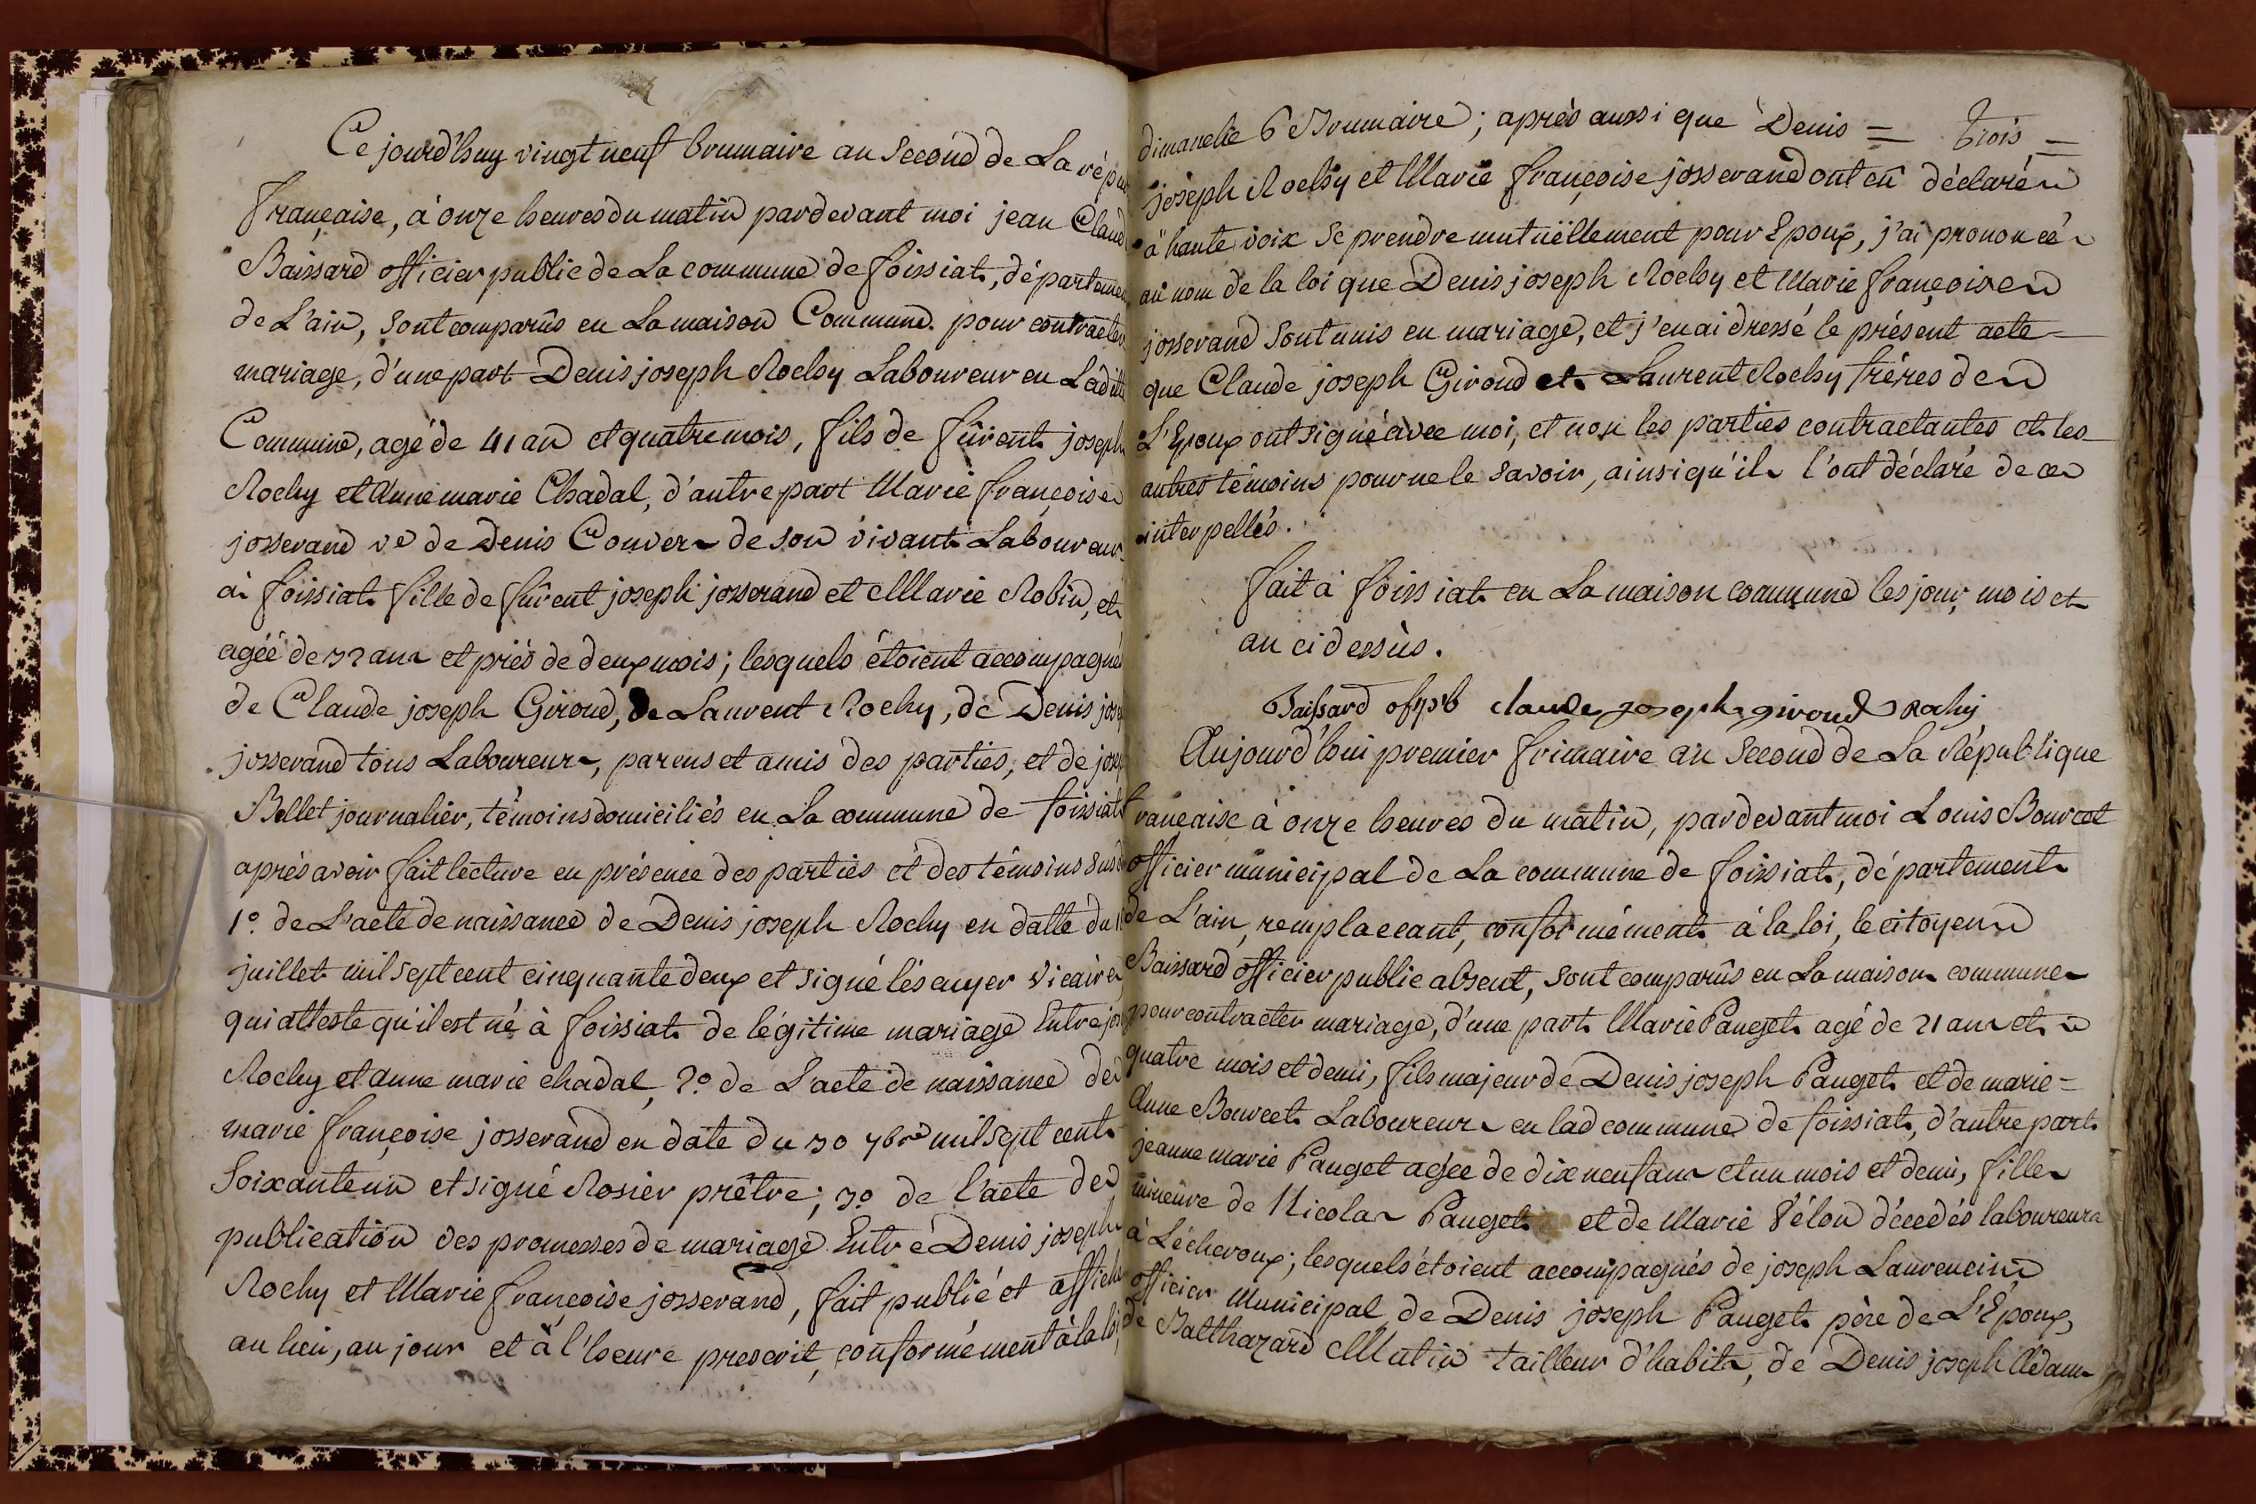 Ce jourd'huy vingt neuf brumaire an Second de La répu
française, à onze heures du matin pardevant moi jean Claud
Baissard officier public de La commune de foissiat, départemen
de L'ain, sont comparûs en La maison Commune pour contracter
mariage, d'une part Denis joseph Rochy Laboureur en Ladite
Commune, agé de 41 an et quatre mois, fils de fûrent joseph
Rochy et Anne marie Chadal, d'autre part Marie françoise
josserand ve de Denis Couver de son vivant Laboureur
à foissiat fille de fûrent joseph josserand et Marie Robin, et
agéé de 32 ans et prés de deux mois; lesquels étoient accompagné
de Claude joseph Giroud, de Laurent Rochy, de Denis jose
josserand tous Laboureurs, parens et amis des parties, et de jose
Bollet journalier, témoins domiciliés en La commune de foissiat
aprés avoir fait lecture en présence des parties et des témoins susd
1º. de L'acte de naissance de Denis joseph Rochy en datte du 1
juillet mil sept cent cinquante deux et signé lésauyer vicaire
qui atteste qu'il est né à foissiat de légitime mariage Entre jos
Rochy et anne marie chadal, 2º. de L'acte de naissance de
marie françoise josserand en date du 30 7bre mil sept cent
Soixante un et signé Rosier prêtre; 3º de l'acte de
publication des promesses de mariage Entre Denis joseph
Rochy et Marie françoise josserand, fait publié et affiché
au lieu, au jour et à l'heure prescrit, conformément à la loi,
dimanche 6 Brumaire; aprés aussi que Denis = trois =
joseph Rochy et Marie françoise josserand ont eû déclaré
à haute voix se prendre mutuëllement pour Epoux, j'ai prononcé
au nom de la loi que Denis joseph Rochy et Marie françoise
josserand sont unis en mariage, et j'en ai dressé le présent acte
que Claude joseph Giroud et Laurent Rochy fréres de
L'Epoux ont signé avec moi, et non les parties contractantes et les
autres témoins pour ne le savoir, ainsi qu'ils l'ont déclaré de ce
interpellés.
fait à foissiat en La maison commune les jour, mois et
an ci dessùs.
Baissard ofpb claude joseph giroud Rochy
Aujourd'hui premier frimaire an Second de La République
française à onze heures du matin, pardevant moi Louis Bourcet
officier municipal de La commune de foissiat, département
de L'ain, remplaceant, conformément à la loi, le citoyen
Baissard officier public absent, sont comparûs en La maison commune
pour contracter mariage, d'une part Marie Pauget agé de 21 ans et
quatre mois et demi, fils majeur de Denis joseph Pauget et de marie =
Anne Bourcet Laboureurs en lad commune de foissiat, d'autre part
jeanne marie Pauget agée de dix neuf ans et un mois et demi, fille
mineure de Nicolas Pauget et de Marie Pélon décedés laboureurs
à Lécheroux; lesquels étoient accompagnés de joseph Laurencin
officier Municipal, de Denis joseph Pauget pére de L'Epoux,
de Balthazard Mutin tailleur d'habits, de Denis joseph Adam